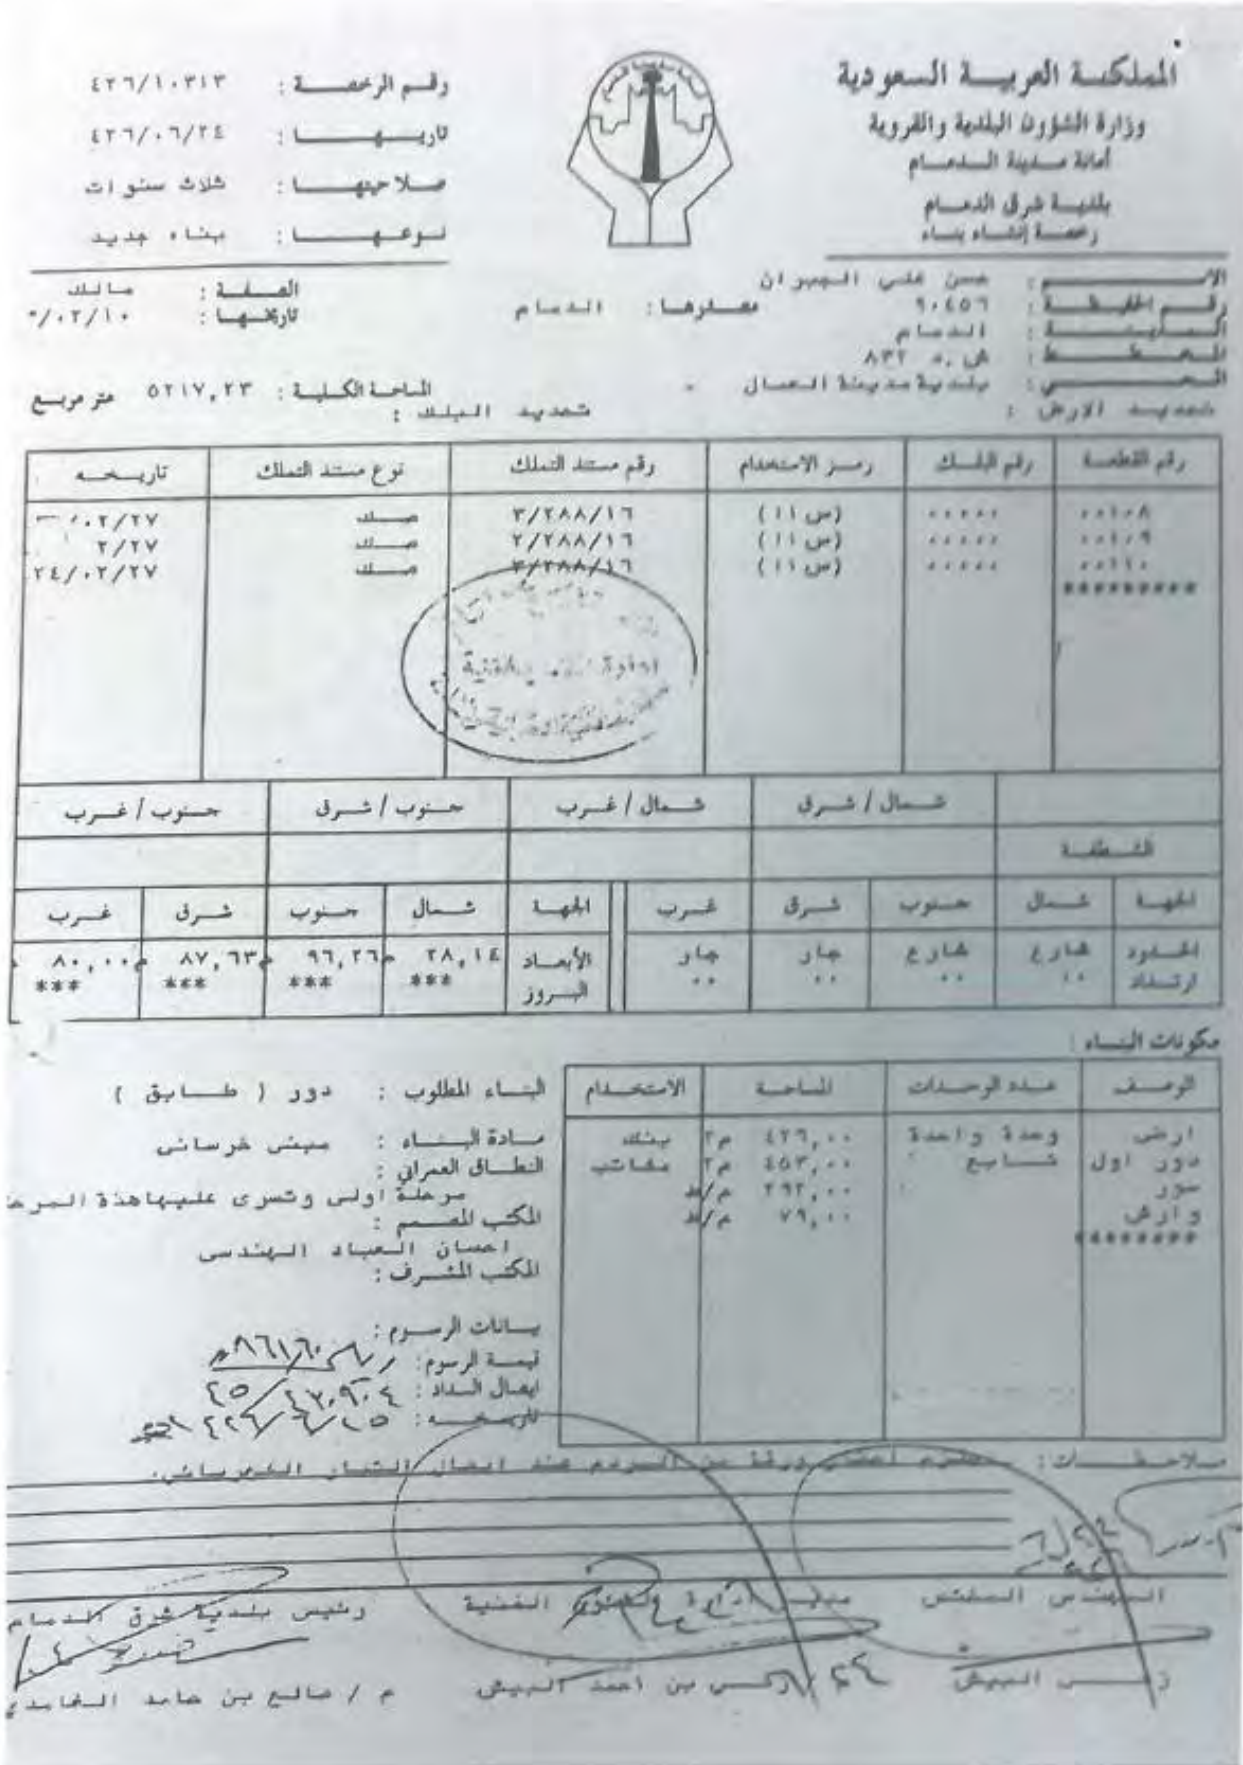 المملكة العربية السعودية
وزارة الشؤون البلدية والقروية
أمانة مدينة الدمام
بلدية شرق الدمام
رخصة إنشاء بناء
رقم الرخصة : ٤٢٦/١٠٣١٣
تاريخها : ٤٢٦/٠٦/٢٤
صلاحيتها : ثلاث سنوات
نوعها : بناء جديد
الاسم : حسن علي الجبران
الصفة : مالك
رقم الحفيظة : ٩٠٤٥٦ مصدرها : الدمام تاريخها : ٠٢/١٠/
المدينة : الدمام
المخطط : ش.د ٨٣٢
الحي : بلدية مدينة العمال - المساحة الكلية : ٥٢١٧,٢٣ متر مربع
تحديد الارض : تحديد البلك :
رقم القطعة رقم البلك رمز الاستخدام رقم مستند التملك نوع مستند التملك تاريخه
٠٠١٠٨ ٠٠٠٠٠ (س١١) ٣/٢٨٨/١٦ صك ٠٢/٢٧/
٠٠١٠٩ ٠٠٠٠٠ (س١١) ٢/٢٨٨/١٦ صك ٢/٢٧
٠٠١١٠ ٠٠٠٠٠ (س١١) ٣/٢٨٨/١٦ صك ٢٤/٠٢/٢٧
*********
شمال / شرق شمال / غرب جنوب / شرق جنوب / غرب
الشطفة
الجهة شمال جنوب شرق غرب الجهة شمال جنوب شرق غرب
الحدود شارع شارع جار جار الأبعاد ٢٨,١٤م ٩٦,٢٦م ٨٧,٦٣م ٨٠,٠٠م
ارتداد ٠٠ ٠٠ ٠٠ ٠٠ البروز *** *** *** ***
مكونات البناء :
الوصف عدد الوحدات المساحة الاستخدام
ارضي وحدة واحدة ٤٢٦,٠٠ م٢ بنك
دور اول تابع ٤٥٣,٠٠ م٢ مكاتب
سور ٢٩٢,٠٠ م/ط
وارش ٧٩,٠٠ م/ط
********
البناء المطلوب : دور ( طابق )
مادة البناء : مبنى خرساني
النطاق العمراني :
مرحلة اولى وتسرى عليها هذة المرحـ
المكتب المصمم :
احسان العباد الهندسى
المكتب المشرف :
بيانات الرسوم :
قيمة الرسوم :
ايصال السداد :
تاريخه :
ملاحظات : ورقة من عند ايصال التيار الكهربائي.
المهندس المختص مدير ادارة الشئون الفنية رئيس بلدية شرق الدمام
زكي البيش زكي بن أحمد البيش م / صالح بن حامد الغامدي